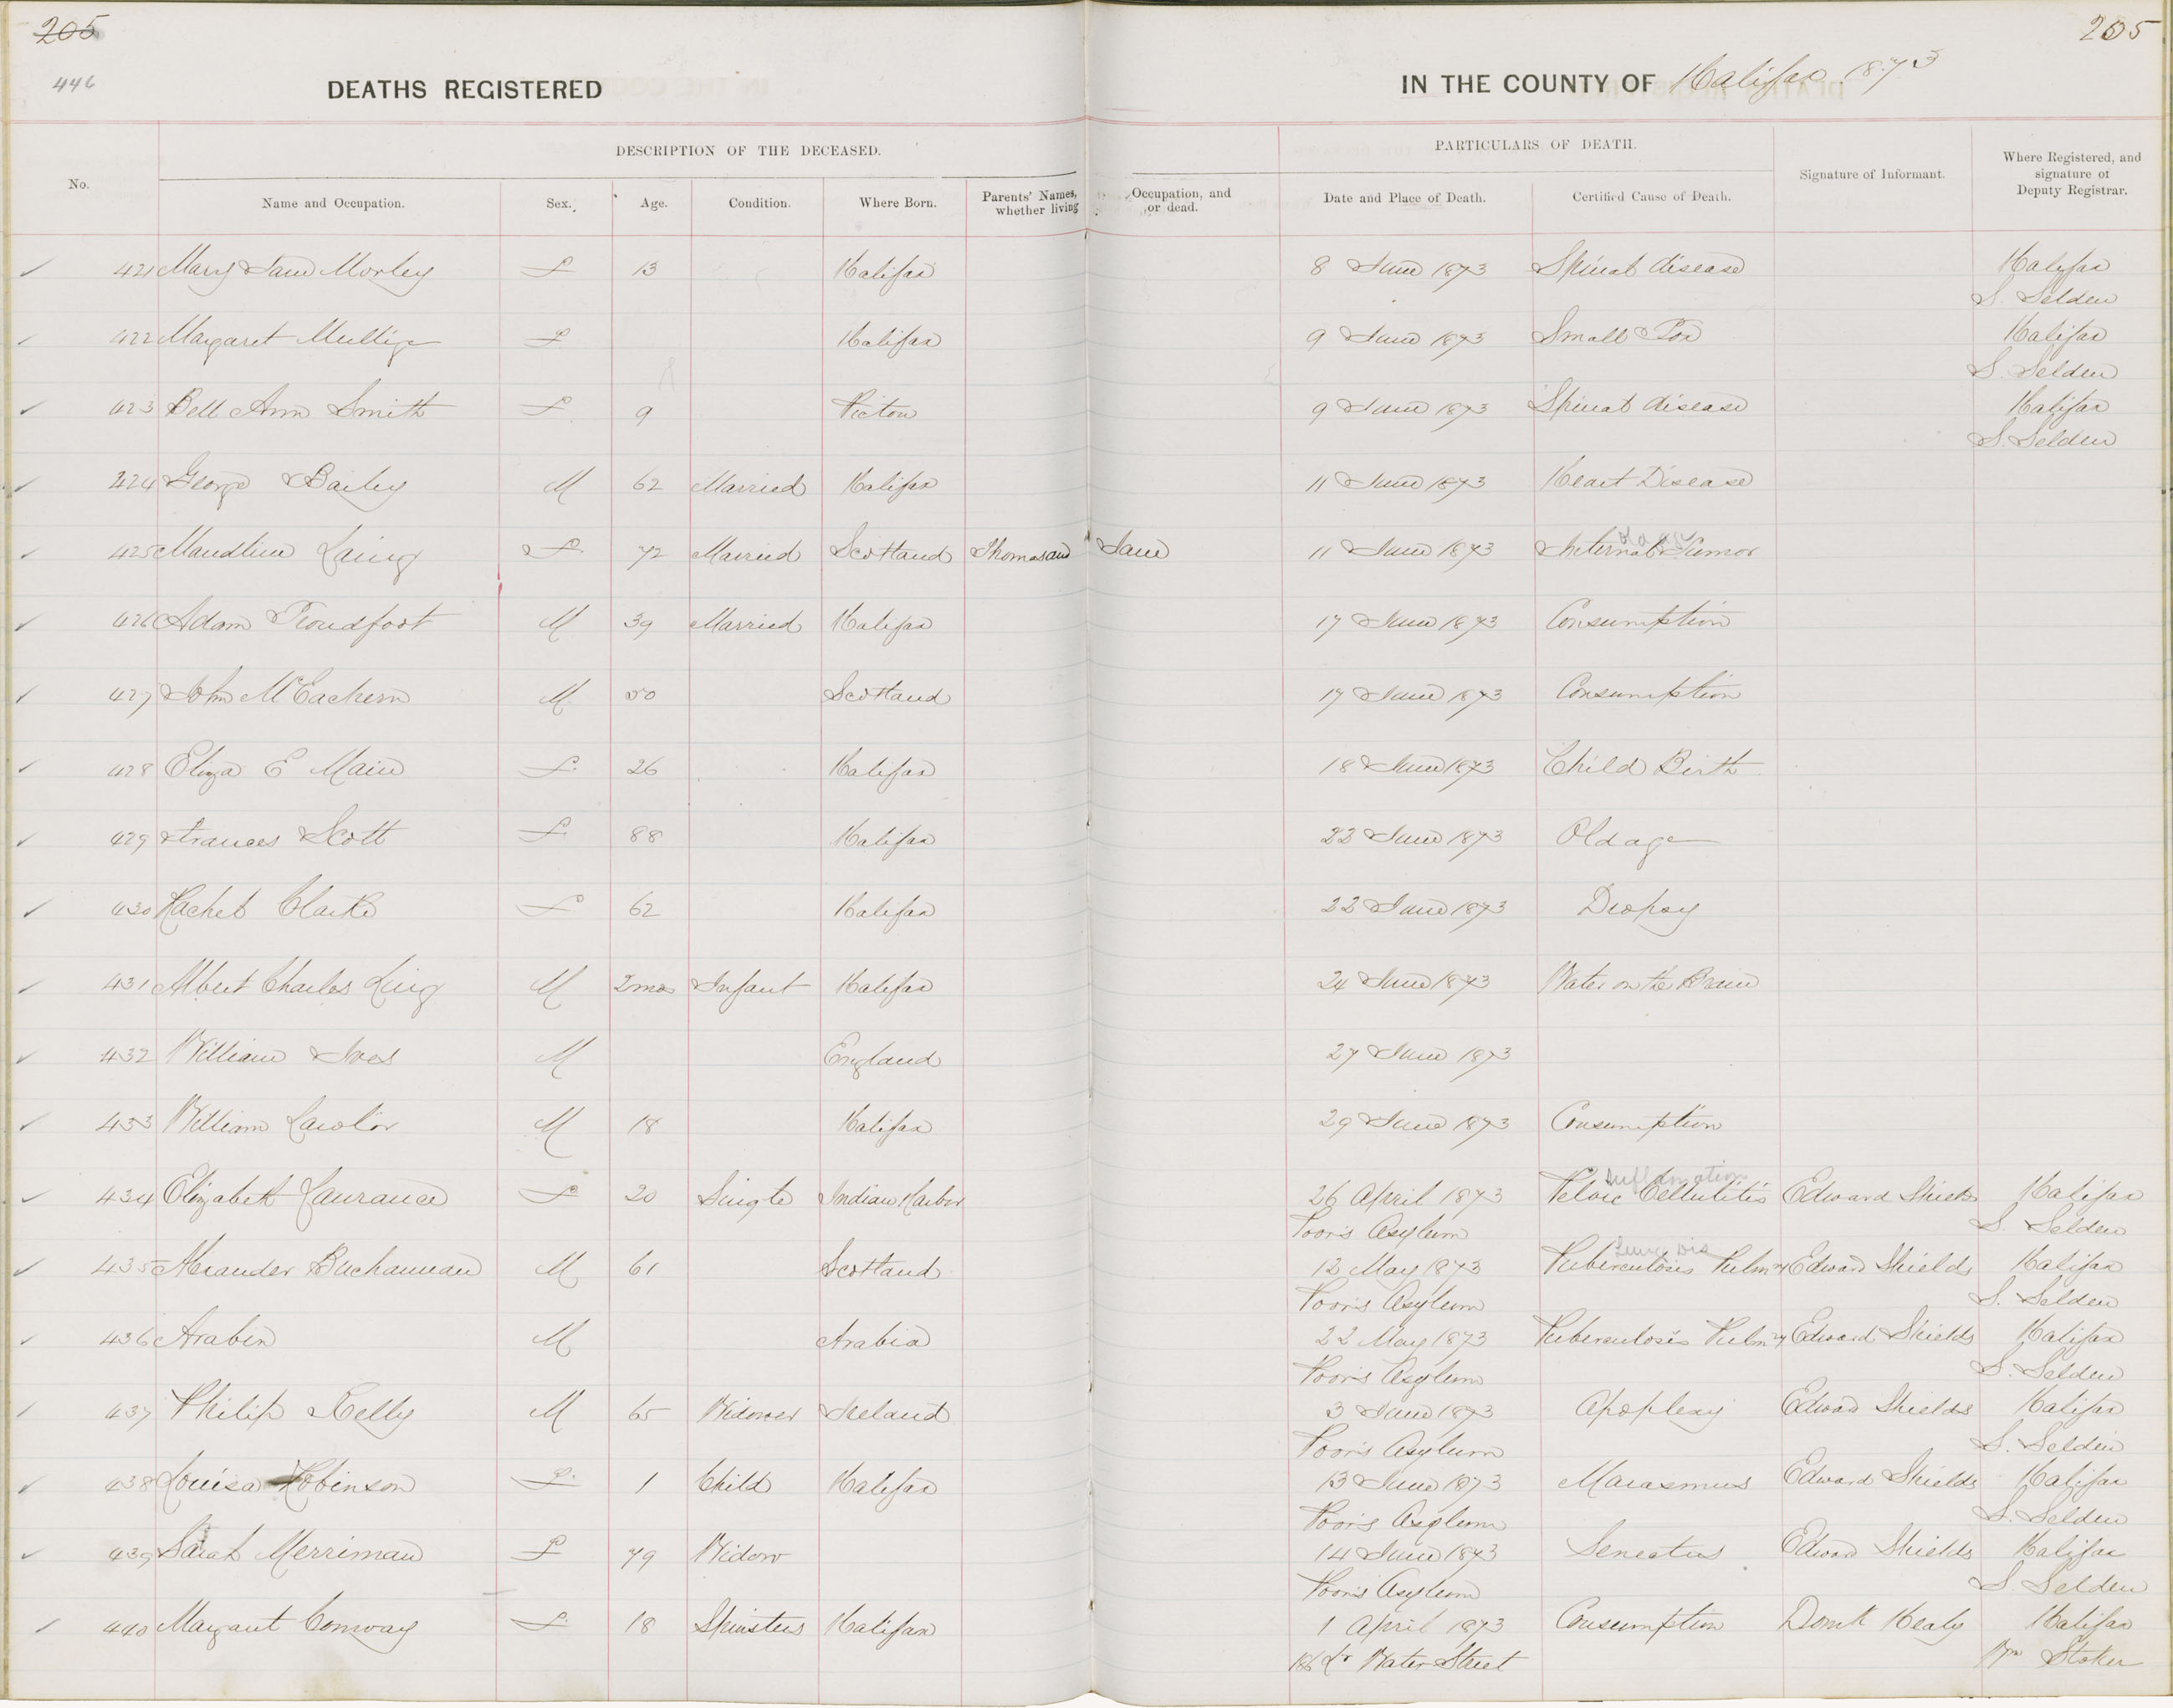 205 205
446 DEATHS REGISTERED IN THE COUNTY OF Halifax 1873
DESCRIPTION OF THE DECEASED. PARTICULARS OF DEATH.
No. Name and Occupation. Sex. Age. Condition. Where Born. Parents' Names, whether living Occupation, and or dead. Date and Place of Death. Certified Cause of Death. Signature of Informant. Where Registered, and signature of Deputy Registrar.
421 Mary Jane Morley F 13 Halifax 8 June 1873 Spinal disease Halifax
S. Selden
422 Margaret F Halifax 9 June 1873 Small Pox Halifax
S. Selden
423 Bell Ann Smith F 9 Pictou 9 June 1873 Spinal disease Halifax
S. Selden
424 George Bailey M 62 Married Halifax 11 June 1873 Heart Disease
425 Maudline Laing F 72 Married Scotland Thomas and Jane 11 June 1873 Internal Tumor
426 Adam Proudfoot M 39 Married Halifax 17 June 1873 Consumption
427 John McEachern M 50 Scotland 17 June 1873 Consumption
428 Eliza E Main F 26 Halifax 18 June 1873 Child Birth
429 Frances Scott F 88 Halifax 22 June 1873 Old age
430 Rachel Clarke F 62 Halifax 22 June 1873 Dropsy
431 Albert Charles King M 2 mos Infant Halifax 24 June 1873 Water on the Brain
432 William Ives M England 27 June 1873
433 William Lawlor M 18 Halifax 29 June 1873 Consumption
Inflamation
434 Elizabeth Laurance F 20 Single Indian Harbor 26 April 1873 Pelvic Cellulitis Edward Shields Halifax
Poor's Asylum S. Selden
Lung Dis
435 Alexander Buchannan M 61 Scotland 12 May 1873 Tuberculosis Pulmry Edward Shields Halifax
Poor's Asylum S. Selden
436 Arabin M Arabia 22 May 1873 Tuberculosis Pulmry Edward Shields Halifax
Poor's Asylum S. Selden
437 Philip Kelly M 65 Widower Ireland 3 June 1873 Apoplexy Edward Shields Halifax
Poor's Asylum S. Selden
438 Louisa Robinson F 1 Child Halifax 13 June 1873 Marasmus Edward Shields Halifax
Poor's Asylum S. Selden
439 Sarah Merriman F 79 Widow 14 June 1873 Senectus Edward Shields Halifax
Poor's Asylum S. Selden
440 Margaret Conway F 18 Spinster Halifax 1 April 1873 Consumption Healy Halifax
Water Street Wm Stoker